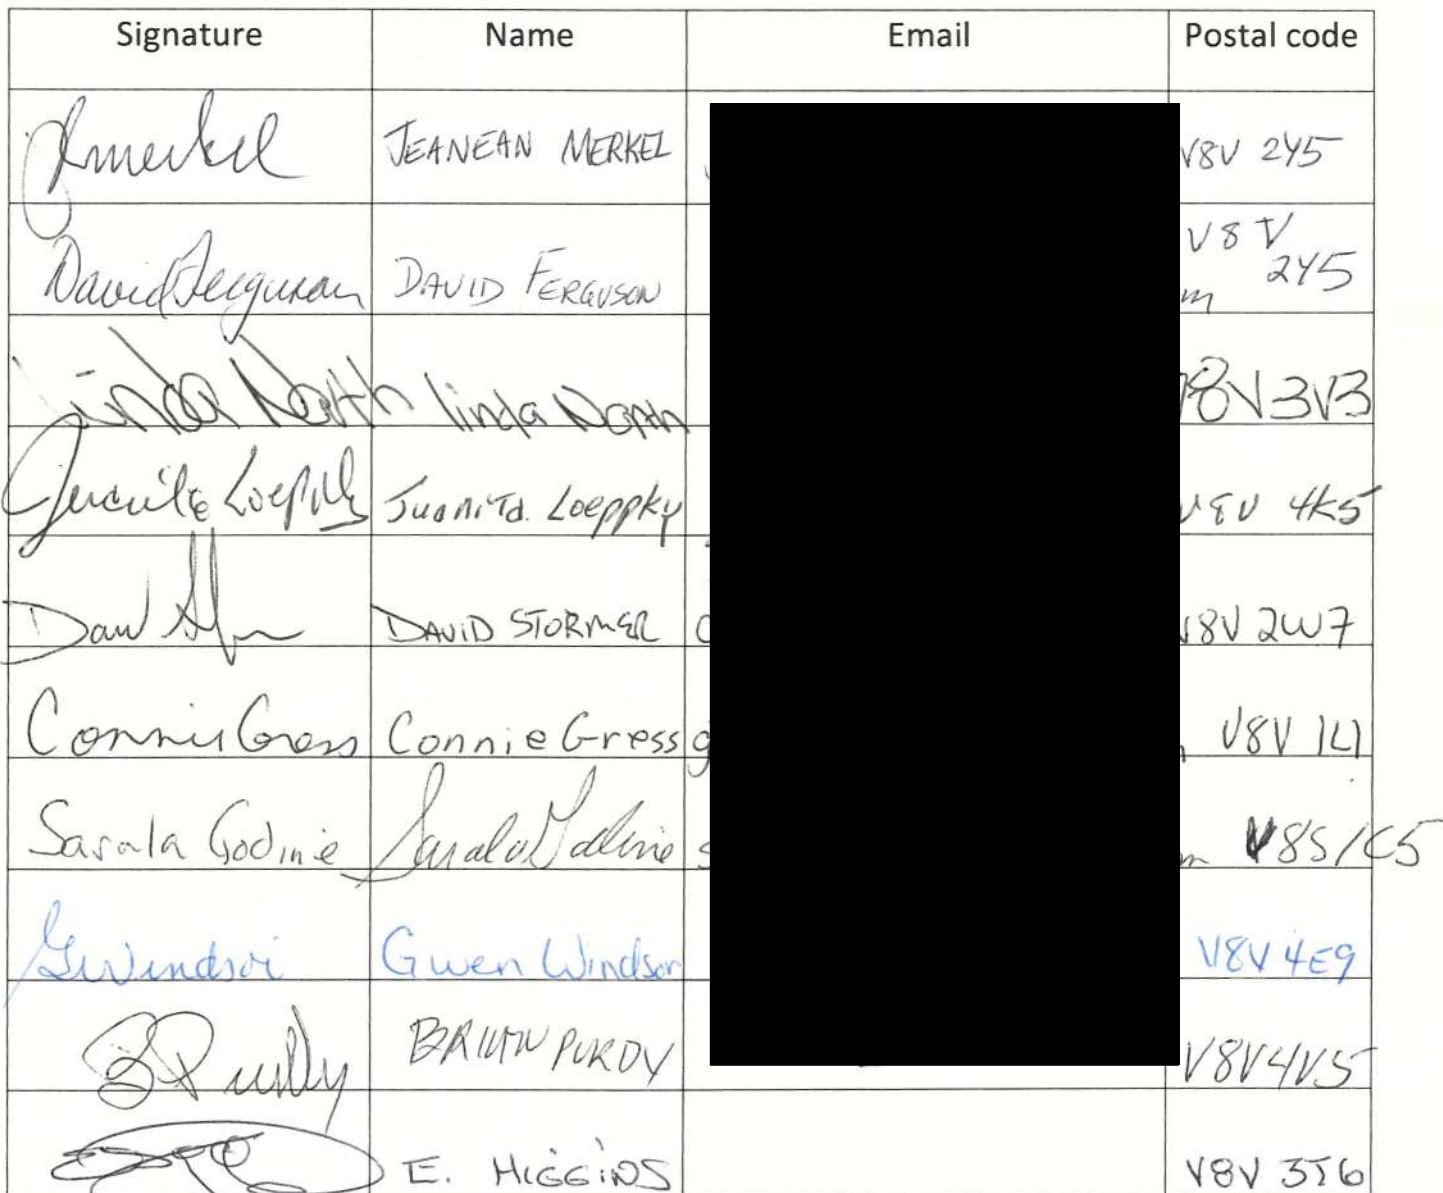 Signature Name Email Postal code
Jmerkel JEANEAN MERKEL V8V 2Y5
David Ferguson DAVID FERGUSON V8V
2Y5
m
Linda North linda North V8V3V3
Juanita Loeppky Juanita Loeppky V8V 4K5
DAVID STORMER V8V 2W7
Connie Gress Connie Gress g V8V 1L1
Sarala Godine Sarala Godine s m V8S1C5
GWindsor Gwen Windsor V8V 4E9
BPurdy BRIAN PURDY V8V4V5
E. HIGGINS V8V 3T6